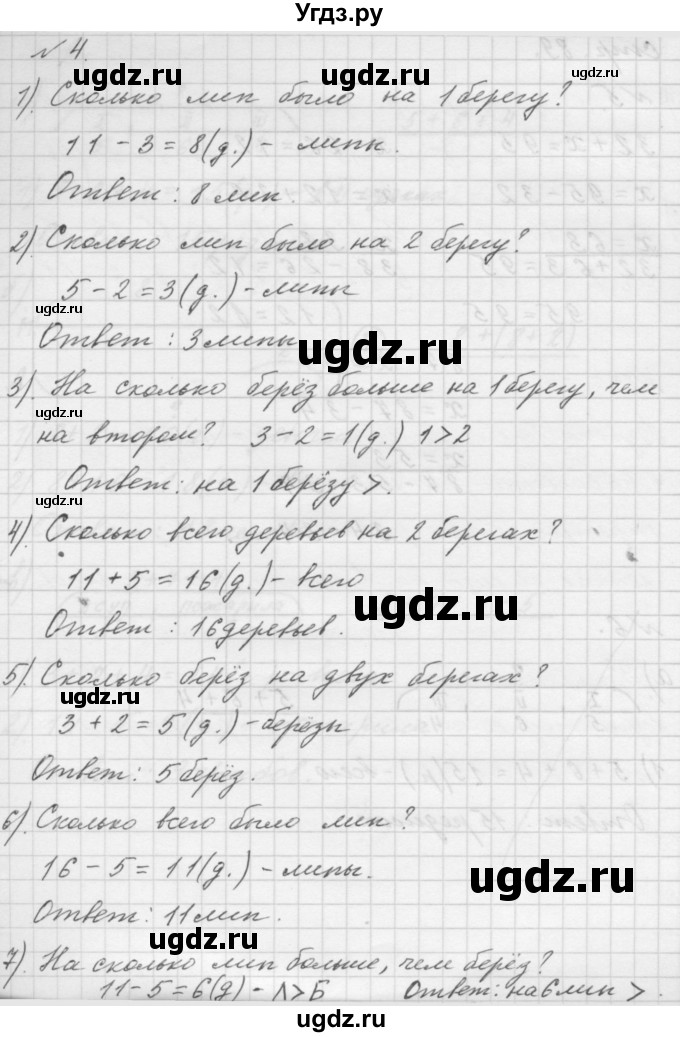 Угдз.ру
№ 4.
1). Сколько лип было на 1 берегу?
11 - 3 = 8 (д.) - липы.
Ответ: 8 лип.
2). Сколько лип было на 2 берегу?
5 - 2 = 3 (д.) - липы
Ответ: 3 липы.
3). На сколько берёз больше на 1 берегу, чем
на втором? 3 - 2 = 1 (д.) 1 > 2
Ответ: на 1 берёзу >.
4). Сколько всего деревьев на 2 берегах?
11 + 5 = 16 (д.) - всего
Ответ: 16 деревьев.
5). Сколько берёз на двух берегах?
3 + 2 = 5 (д.) - берёзы
Ответ: 5 берёз.
6). Сколько всего было лип?
16 - 5 = 11 (д.) - липы.
Ответ: 11 лип.
7). На сколько лип больше, чем берёз?
11 - 5 = 6 (д) - Л > Б Ответ: на 6 лип >.
ugdz.ru
ugdz.ru
ugdz.ru
ugdz.ru
ugdz.ru
ugdz.ru
ugdz.ru
ugdz.ru
ugdz.ru
ugdz.ru
ugdz.ru
ugdz.ru